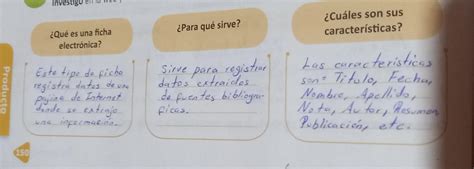 Investigo en la web
¿Qué es una ficha
electrónica?
Este tipo de ficha
registra datos de una
pagina de Internet
donde se extrajo
una información.
¿Para qué sirve?
Sirve para registrar
datos extraidos
de fuentes bibliogra-
ficas.
¿Cuáles son sus
características?
Las características
son: Titulo, Fecha,
Nombre, Apellido,
Nota, Autor, Resumen
Publicación, etc.
Producto
150